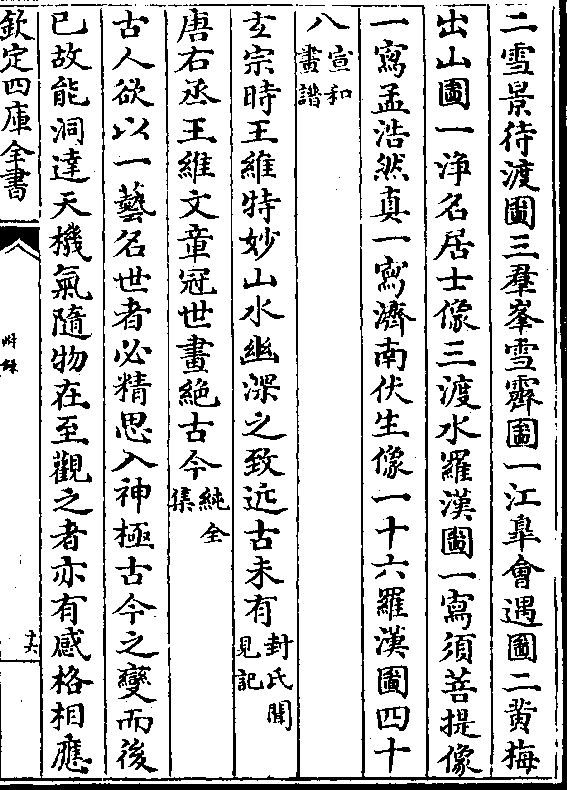 二雪景待渡圖三羣峯雪霽圖一江臯會遇圖二黄梅
出山圖一淨名居士像三渡水羅漢圖一寫須菩提像
一寫孟浩然真一寫濟南伏生像一十六羅漢圖四十
八宣和畫譜
玄宗時王維特妙山水幽深之致近古未有封氏聞見記
唐右丞王維文章冠世畫絶古今純全集
古人欲以一藝名世者必精思入神極古今之變而後
已故能洞達天機氣隨物在至觀之者亦有感格相應
欽定四庫全書
附錄
十六